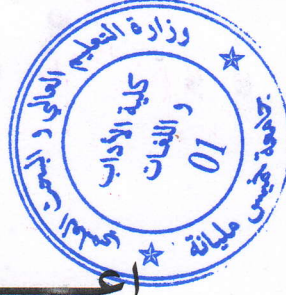 وزارة التعليم العالي و البحث العلمي
جامعة خميس مليانة
كلية الآداب
و اللغات
01